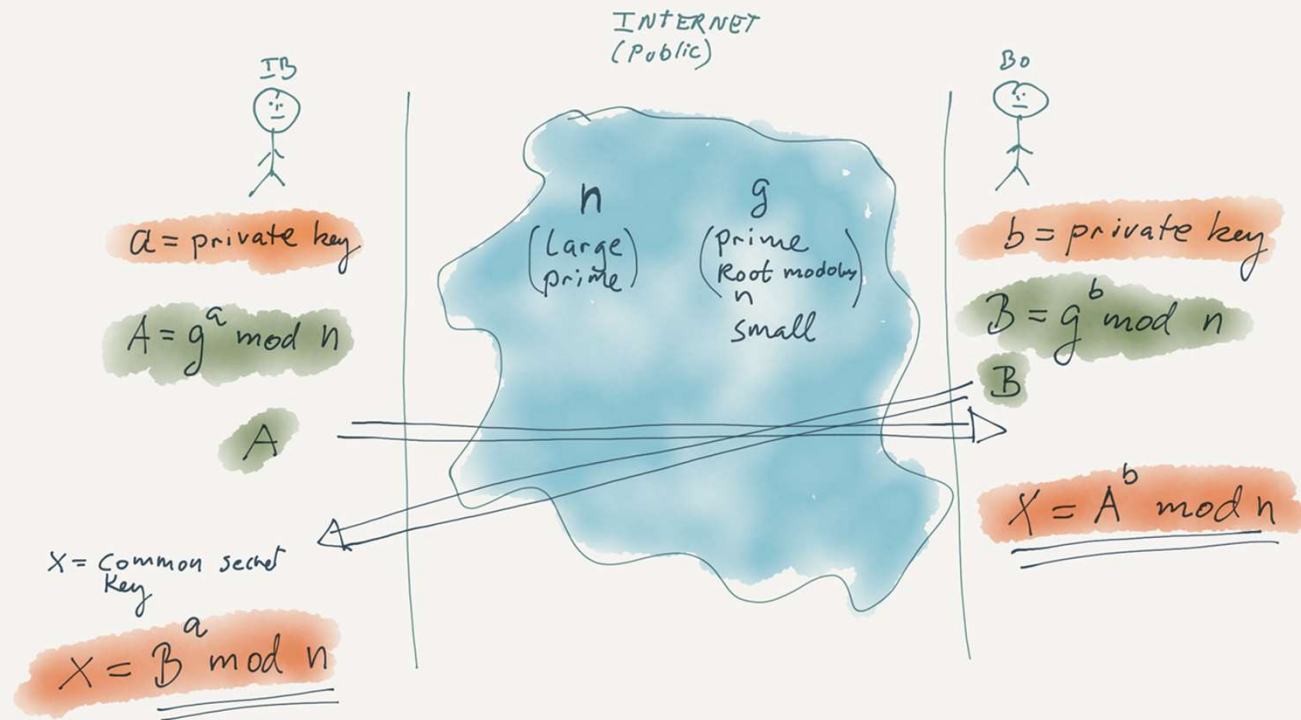 INTERNET
(Public)
IB
a = private key
A = g^a mod n
A
X = Common secret
Key
X = B^a mod n
n
(Large
prime)
g
(prime
Root modolus
n)
small
Bo
b = private key
B = g^b mod n
B
X = A^b mod n